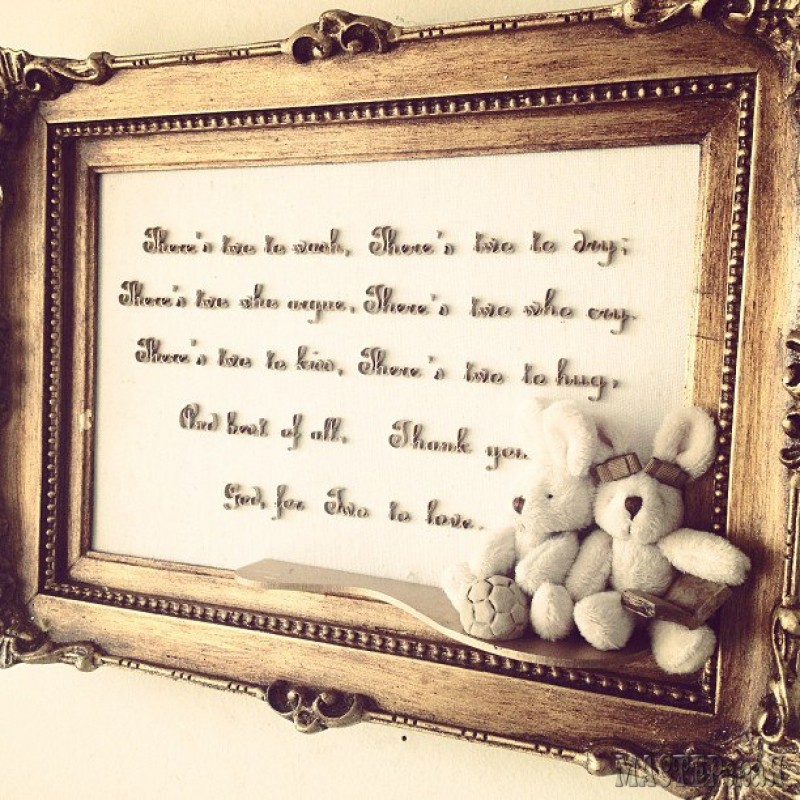 There's two to wash, There's two to dry;
There's two who argue, There's two who cry.
There's two to kiss, There's two to hug,
And best of all, Thank you
God, for Two to love.